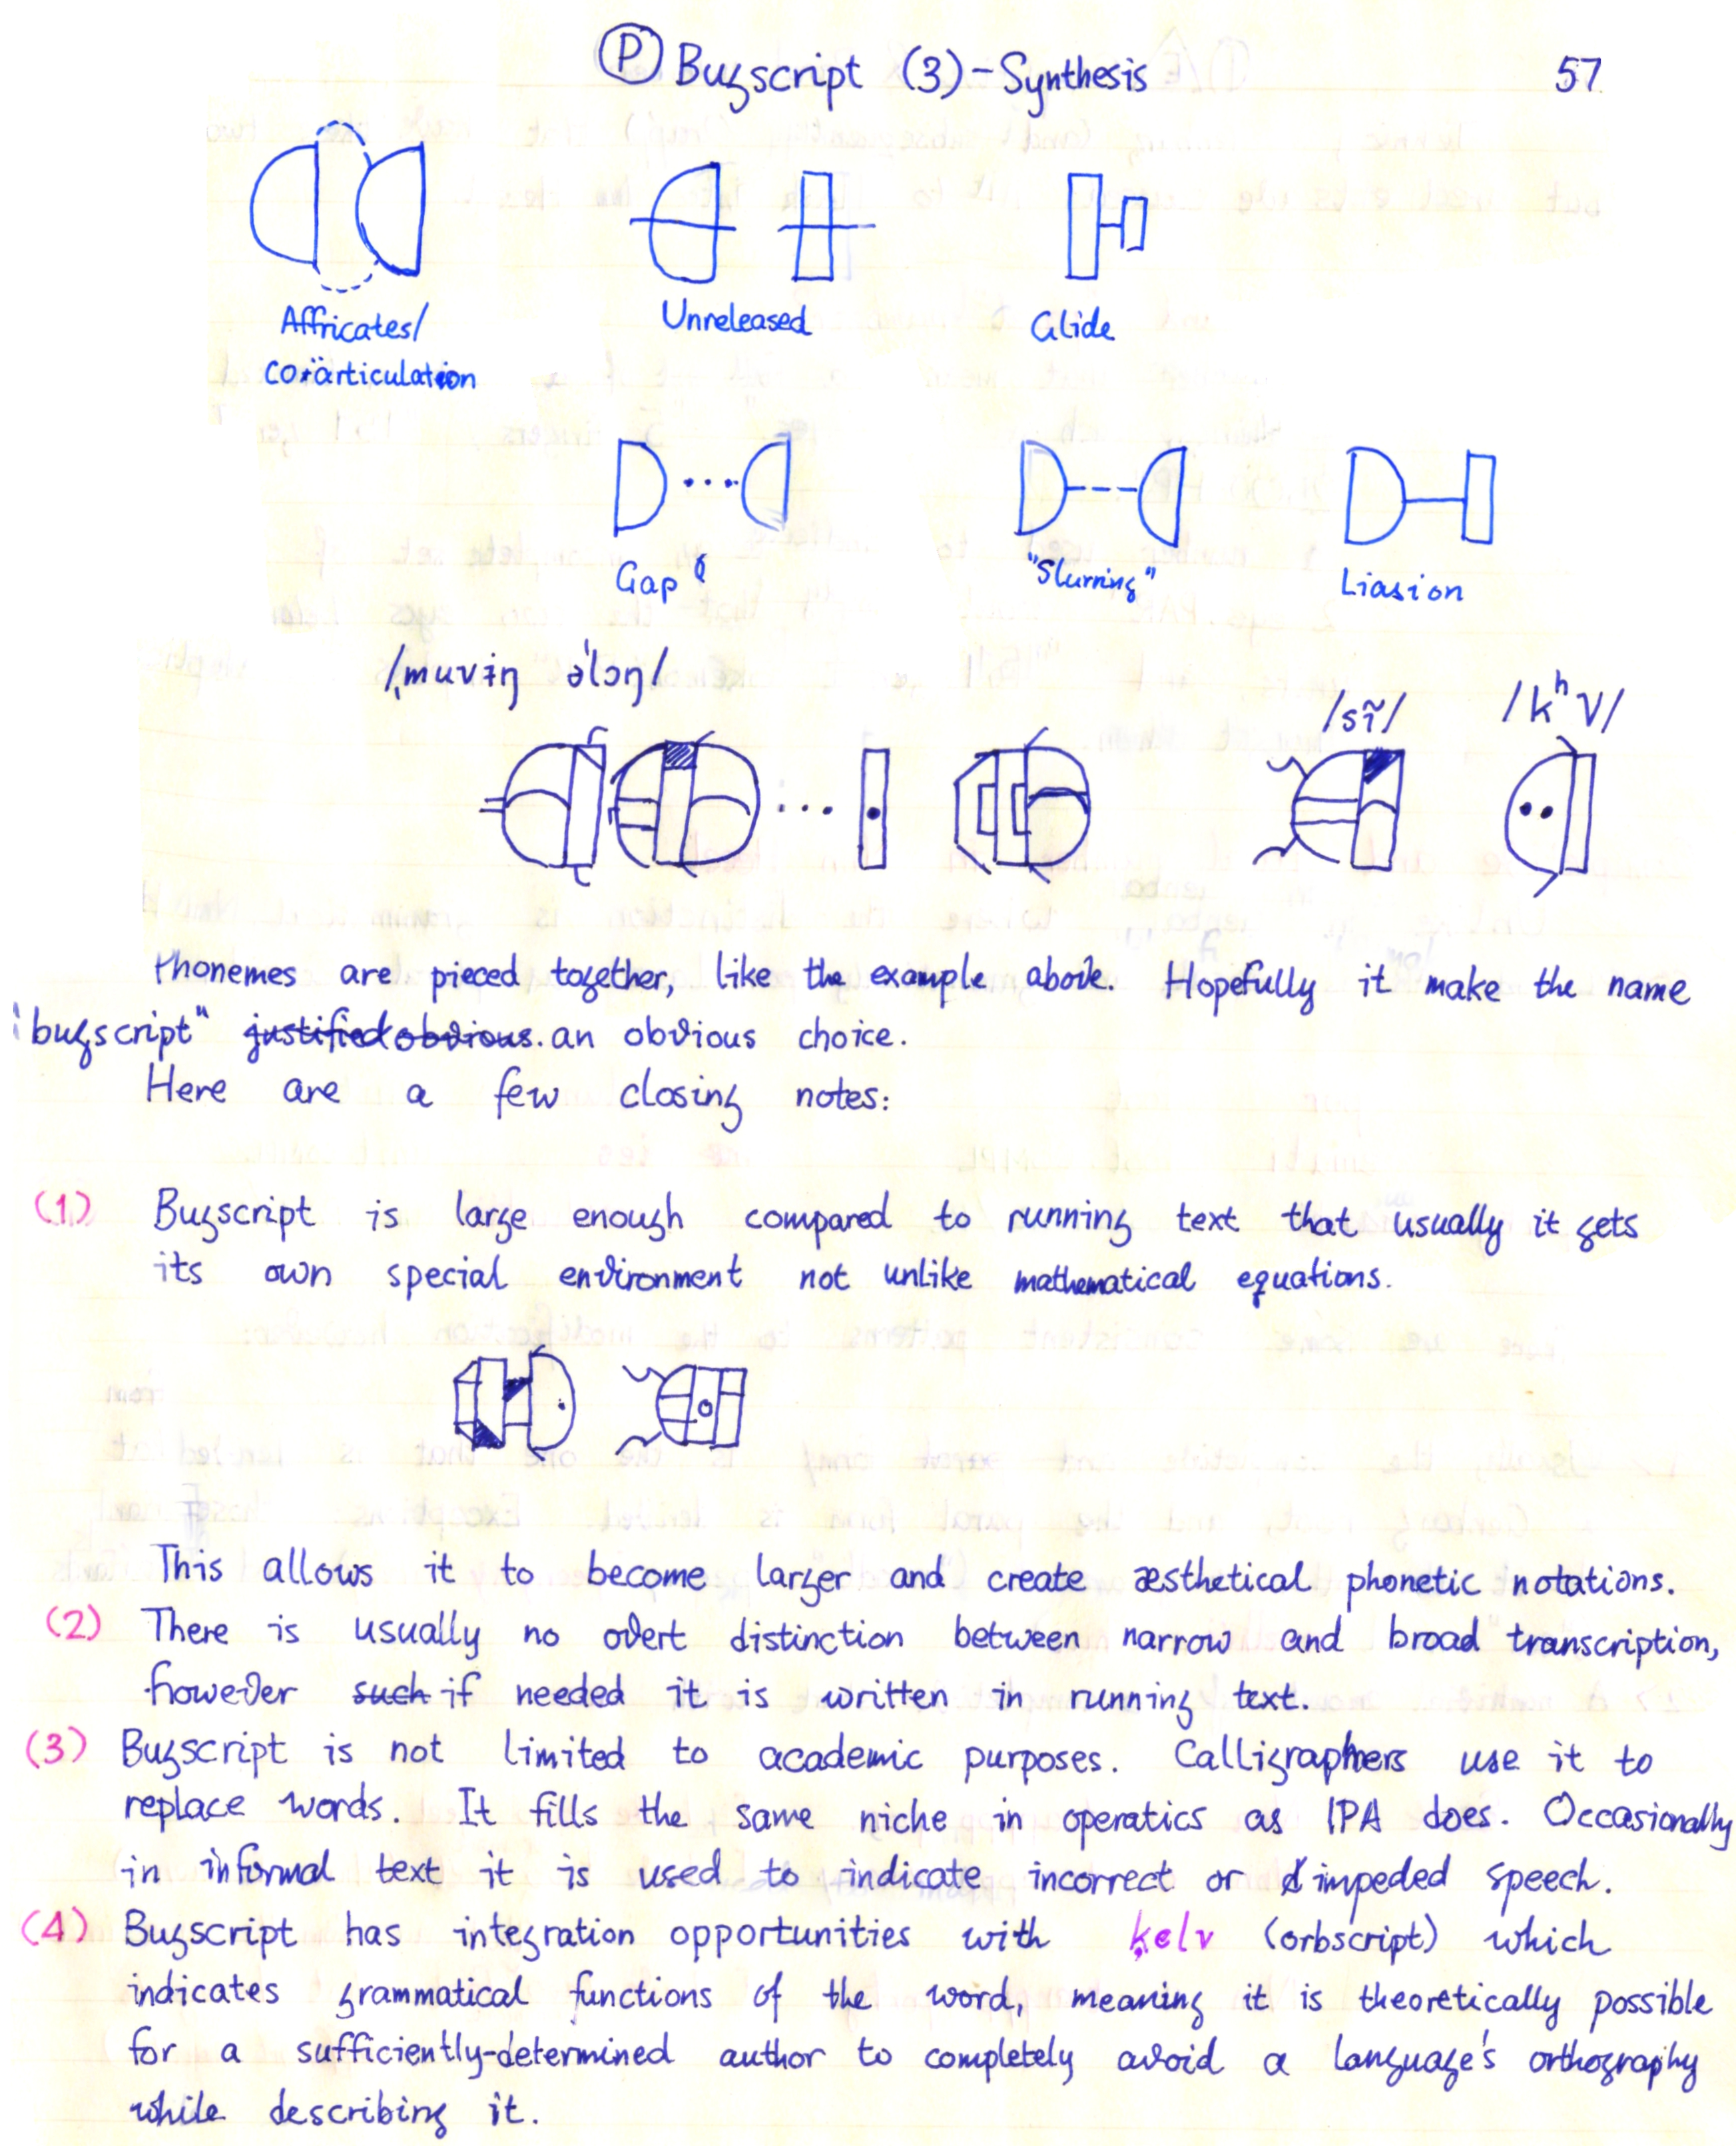 Ⓟ Bugscript (3)-Synthesis 57
Affricates/
coarticulation
Unreleased
Glide
Gap
"Slurring"
Liasion
/ˌmuvɨŋ əˈlɔŋ/
/sĩ/
/kʰV/
Phonemes are pieced together, like the example above. Hopefully it make the name
"bugscript" justified obvious. an obvious choice.
Here are a few closing notes:
(1) Bugscript is large enough compared to running text that usually it gets
its own special environment not unlike mathematical equations.
This allows it to become larger and create æsthetical phonetic notations.
(2) There is usually no overt distinction between narrow and broad transcription,
however such if needed it is written in running text.
(3) Bugscript is not limited to academic purposes. Calligraphers use it to
replace words. It fills the same niche in operatics as IPA does. Occasionally
in informal text it is used to indicate incorrect or impeded speech.
(4) Bugscript has integration opportunities with ķelv (orbscript) which
indicates grammatical functions of the word, meaning it is theoretically possible
for a sufficiently-determined author to completely avoid a language's orthography
while describing it.